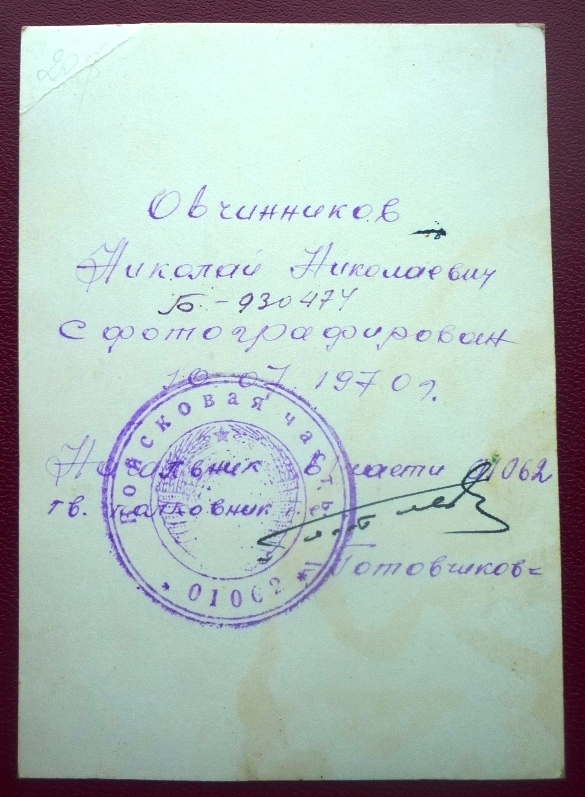 20
Овчинников
Николай Николаевич
Б-930474
сфотографирован
10 07 1970г.
Начальник в/части 01062
гв. полковник
Готовчиков
Войсковая часть
* 01062 *